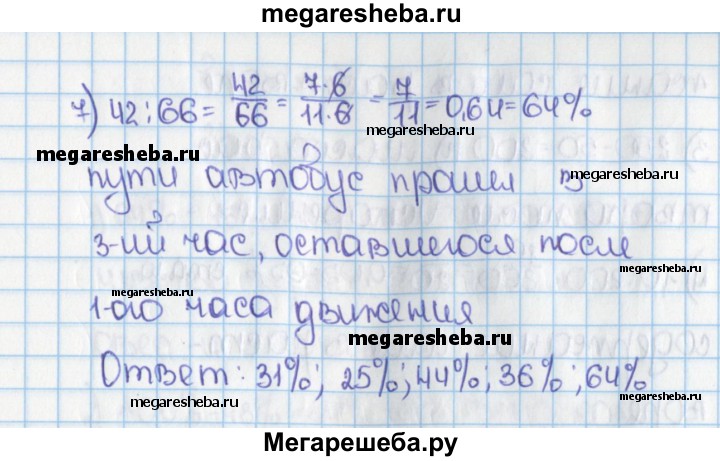 megaresheba.ru
7) 42:66 = 42/66 = 7·6/11·6 = 7/11 = 0,64 = 64%
megaresheba.ru
megaresheba.ru
пути автобус прошел в
megaresheba.ru
3-ий час, оставшегося после
megaresheba.ru
megaresheba.ru
1-ого часа движения
megaresheba.ru
Ответ: 31%; 25%; 44%; 36%; 64%
megaresheba.ru
megaresheba.ru
Мегарешеба.ру